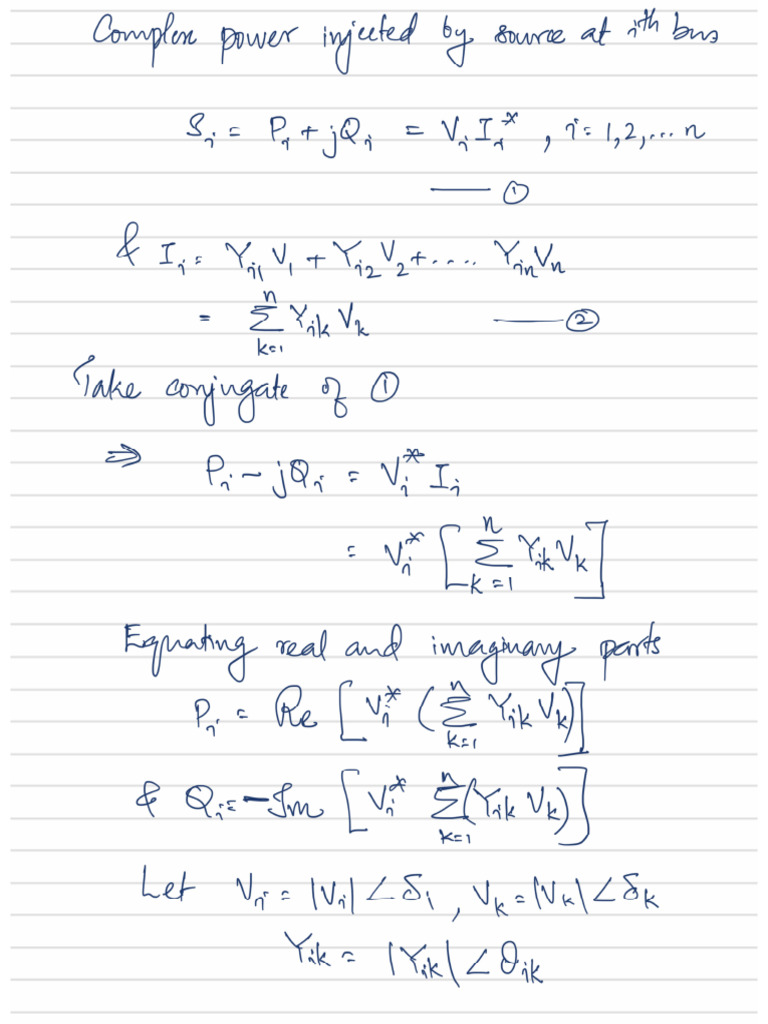 Complex power injected by source at ith bus
Si = Pi + jQi = Vi Ii*, i = 1,2,... n
—— ①
& Ii = Yi1 V1 + Yi2 V2 + .... Yin Vn
= Σ(k=1 to n) Yik Vk —— ②
Take conjugate of ①
⇒ Pi - jQi = Vi* Ii
= Vi* [ Σ(k=1 to n) Yik Vk ]
Equating real and imaginary parts
Pi = Re [ Vi* ( Σ(k=1 to n) Yik Vk ) ]
& Qi = - Im [ Vi* Σ(k=1 to n) (Yik Vk) ]
Let Vi = |Vi| ∠δi, Vk = |Vk| ∠δk
Yik = |Yik| ∠θik